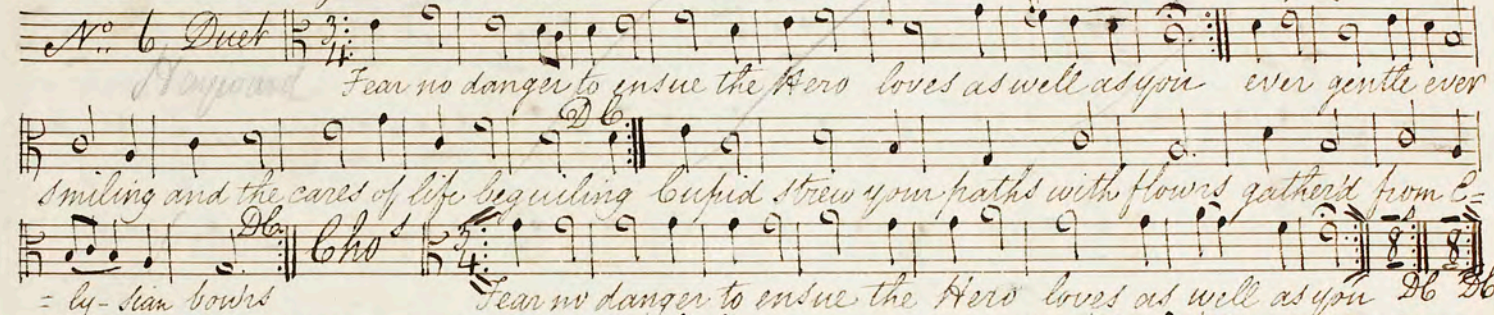 No. 6 Duet 3/4
Hayward Fear no danger to ensue the Hero loves as well as you ever gentle ever
DC
smiling and the cares of life beguiling Cupid strew your paths with flow'rs gather'd from E=
DC. Chos 3/4
=ly-sian bow'rs Fear no danger to ensue the Hero loves as well as you DC DC